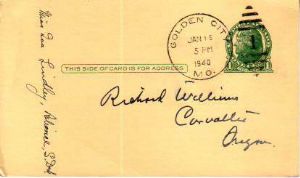 GOLDEN CITY
JAN 15
5 PM
1940
MO.
THIS SIDE OF CARD IS FOR ADDRESS
Richard Williams
Corvallis
Oregon.
Miss Lindley,